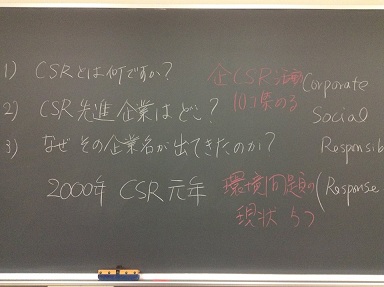 1) CSRとは何ですか?
2) CSR先進企業はどこ?
3) なぜその企業名が出てきたのか?
2000年 CSR元年
企CSR活動
10コ集める
環境問題の
現状 5つ
Corporate
Social
Responsib
(Response